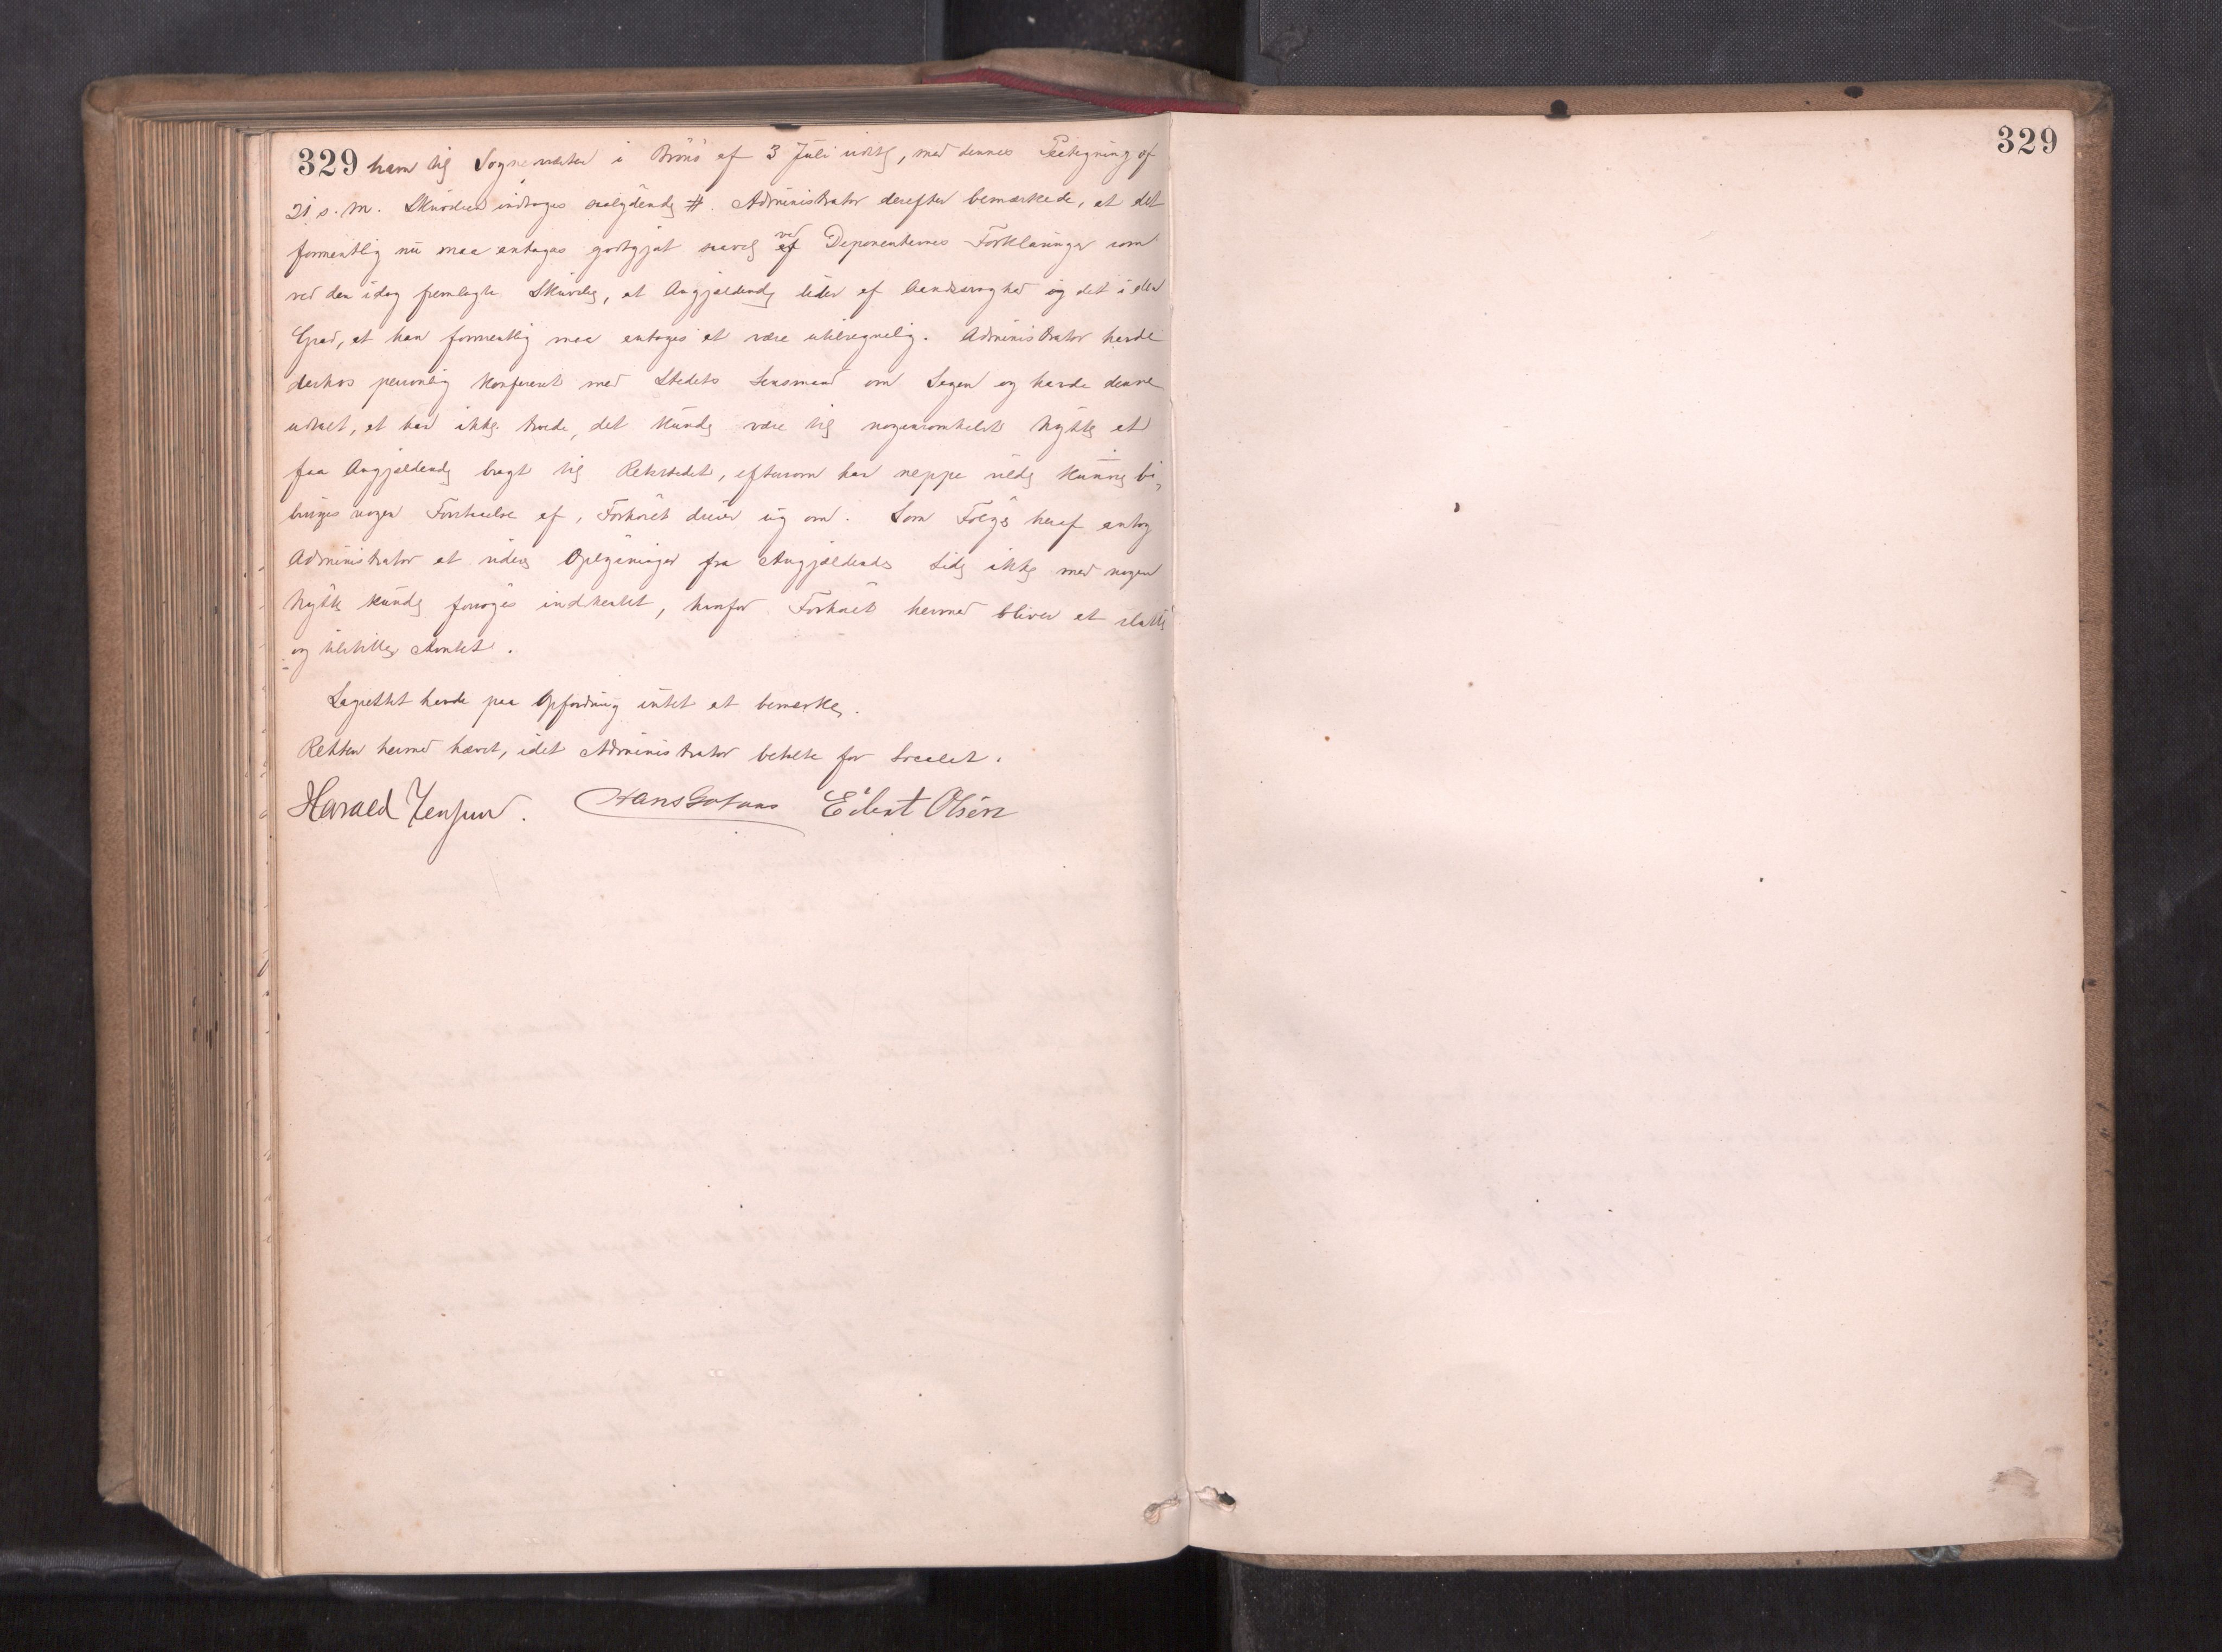 329 ham til Sognepresten i Brönö af 3 Juli sidstl, med dennes Paategning af
21 s. M. Skrivelsen indtages saalydende #. Administrator derefter bemærkede, at det
formentlig nu maa antages godtgjort saavel ved Deponenternes Forklaringer som
ved den idag fremlagte Skrivelse, at Angjældende lider af Aandssvaghed og det i den
Grad, at han formentlig maa antages at være utilregnelig. Administrator havde
derhos personlig konfereret med Stedets Lensmand om Sagen og havde denne
udtalt, at han ikke troede, det kunde være til nogensomhelst Nytte at
faa Angjældende bragt til Retsstedet, eftersom han neppe vilde kunne bi-
bringes nogen Forstaaelse af, Forhöret dreier sig om. Som Fölge heraf antog
Administrator at videre Oplysninger fra Angjældendes Side ikke med nogen
Nytte kunde forsöges indhentet, hvorfor Forhöret hermed bliver at slutte
og tilstille Amtet.
Lagrettet havde paa Opfordring intet at bemærke.
Retten hermed hævet, idet Administrator betalte for Localet.
Harald Jensen. Hans Edvert Olsen
329